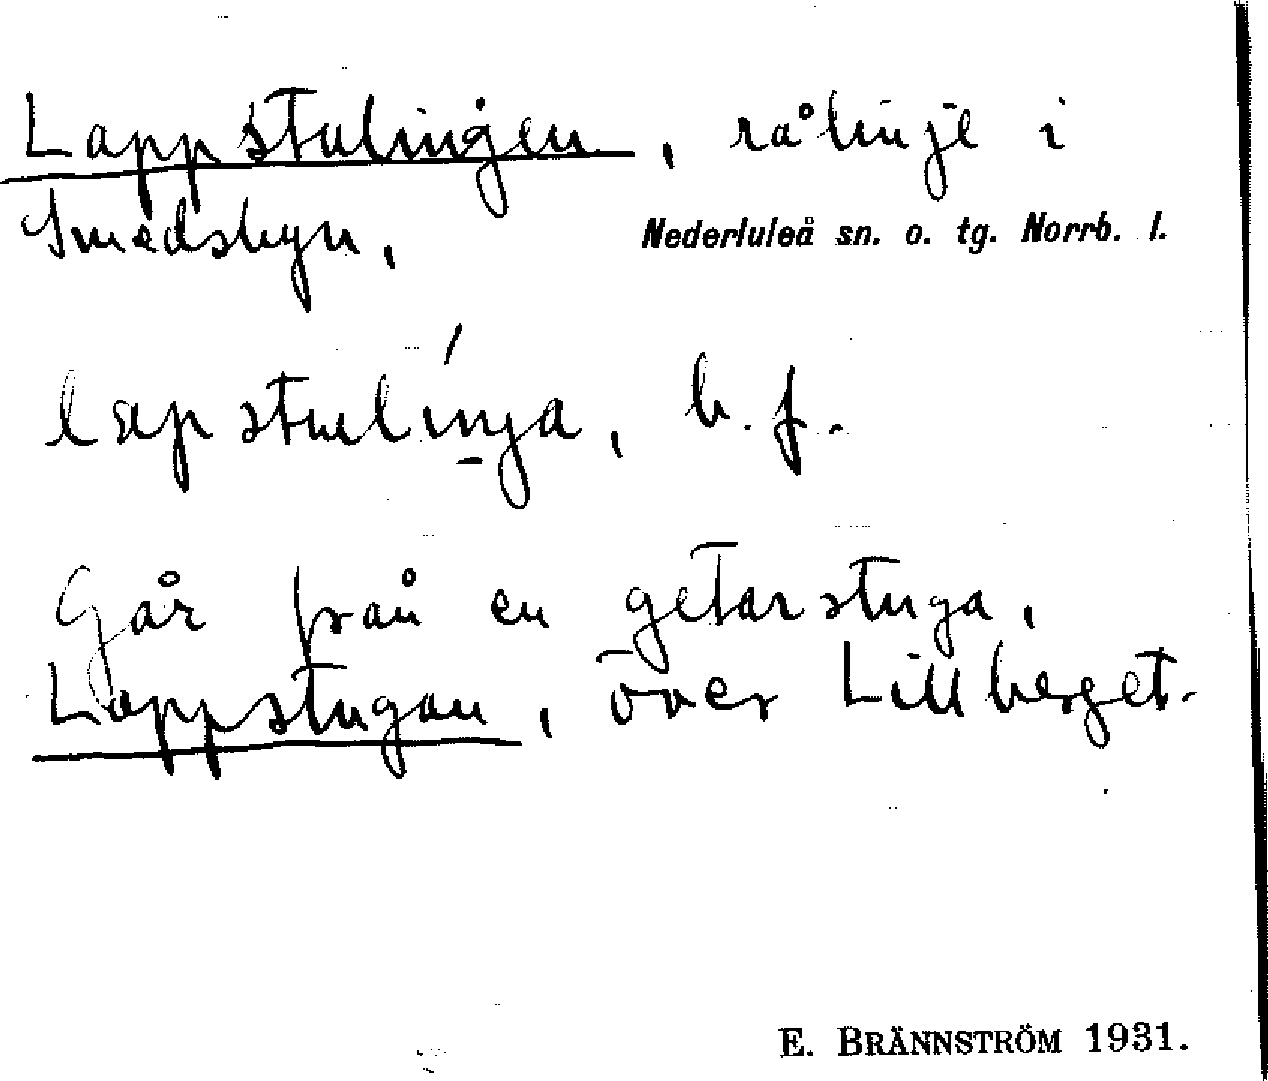 Lappstulinjen, rålinje i
Smedsbyn,
Nederluleå sn. o. tg. Norrb. l.
lapstulinja, b. f.
Går från en getarstuga,
Lappstugan, över Lillberget.
E. BRÄNNSTRÖM 1931.